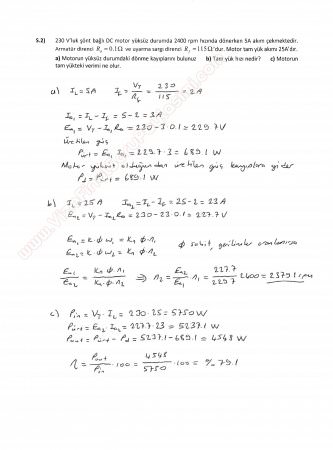 5.2) 230 V'luk şönt bağlı DC motor yüksüz durumda 2400 rpm hızında dönerken 5A akım çekmektedir.
Armatür direnci R_a = 0.1Ω ve uyarma sargı direnci R_f = 115Ω'dur. Motor tam yük akımı 25A'dır.
a) Motorun yüksüz durumdaki dönme kayıplarını bulunuz b) Tam yük hızı nedir? c) Motorun
tam yükteki verimi ne olur.
a) I_L = 5A I_f = V_T / R_f = 230 / 115 = 2A
I_a1 = I_L - I_f = 5 - 2 = 3A
E_a1 = V_T - I_a1 R_a = 230 - 3·0.1 = 229.7V
Üretilen güç
P_üret = E_a1 I_a1 = 229.7·3 = 689.1 W
Motor yüksüz olduğundan üretilen güç kayıplara gider
P_d = P_üret = 689.1 W
b) I_L = 25A I_a2 = I_L - I_f = 25 - 2 = 23A
E_a2 = V_T - I_a2 R_a = 230 - 23·0.1 = 227.7V
E_a1 = K·φ ω_1 = K_1 φ·n_1
E_a2 = K·φ ω_2 = K_1 φ·n_2
φ sabit, gerilimler oranlanırsa
E_a1 / E_a2 = K_1 φ·n_1 / K_1 φ·n_2 ⇒ n_2 = E_a2 / E_a1 n_1 = 227.7 / 229.7 2400 = 2379.1 rpm
c) P_in = V_T · I_L = 230·25 = 5750 W
P_üret = E_a2 · I_a2 = 227.7·23 = 5237.1 W
P_out = P_üret - P_d = 5237.1 - 689.1 = 4548 W
η = P_out / P_in · 100 = 4548 / 5750 · 100 = % 79.1